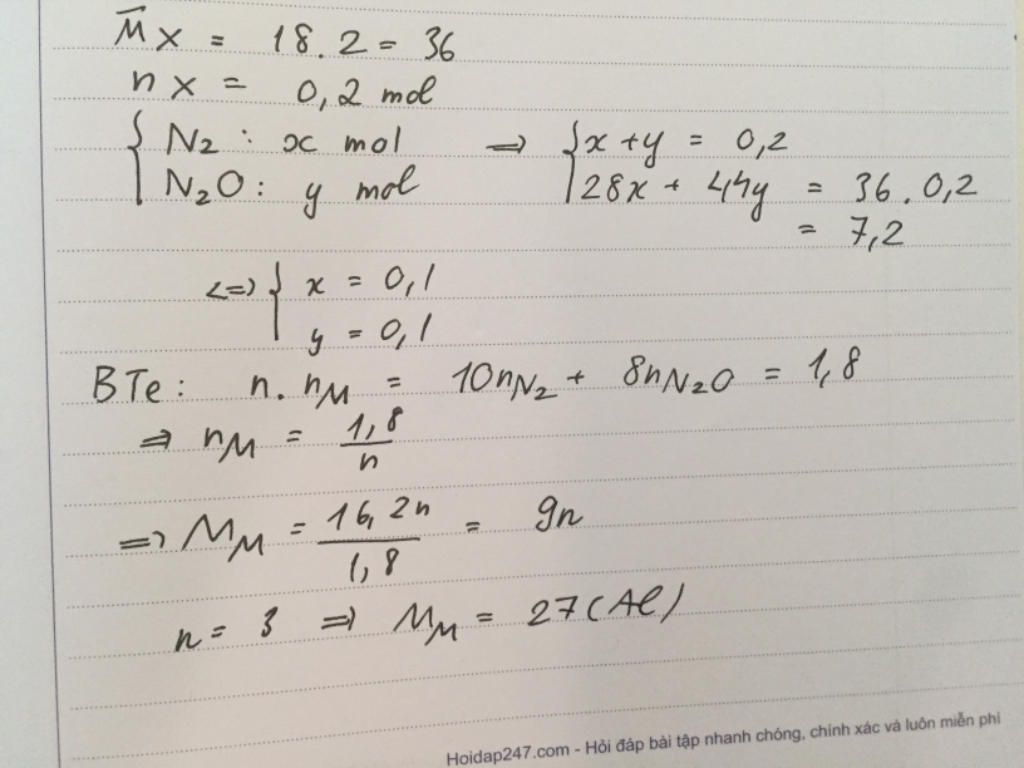 M̄x = 18.2 = 36
nx = 0,2 mol
{ N2 : x mol ⇒ { x + y = 0,2
N2O : y mol 28x + 44y = 36.0,2
= 7,2
<=> { x = 0,1
y = 0,1
BTe : n.nM = 10nN2 + 8nN2O = 1,8
⇒ nM = 1,8/n
=> MM = 16,2n/1,8 = 9n
n = 3 => MM = 27 (Al)
Hoidap247.com - Hỏi đáp bài tập nhanh chóng, chính xác và luôn miễn phí